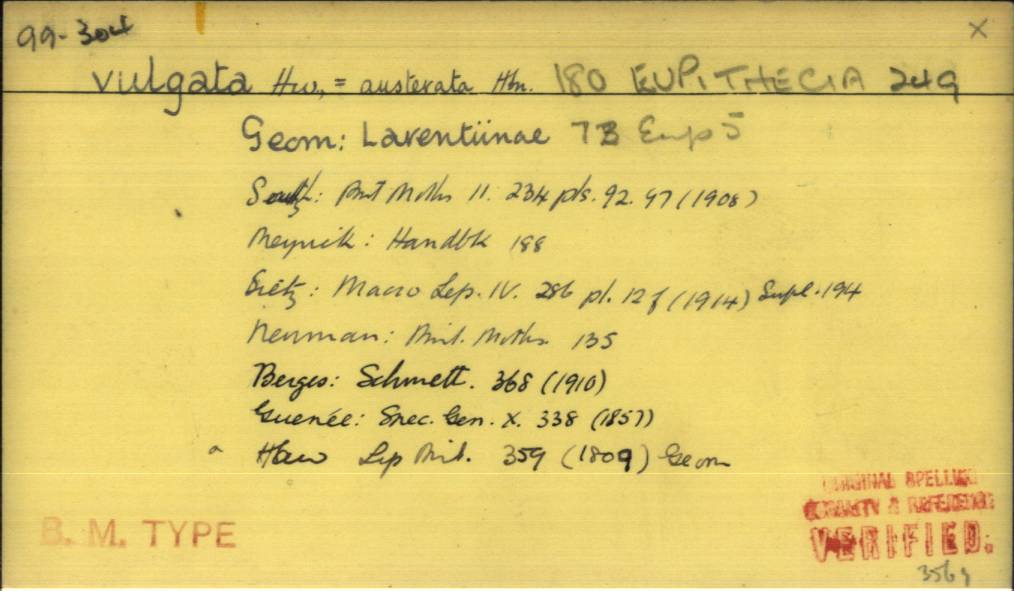 99-304 X
vulgata Hw, = austerata Hbn. 180 EUPITHECIA 249
Geom: Larentiinae 7B Eup 5
South: Brit Moths II. 234 pls. 92. 97 (1908)
Meyrick: Handbk 188
Seitz: Macro Lep. IV. 286 pl. 12 f (1914) Supl. 194
Newman: Brit. Moths 135
Berges: Schmett. 368 (1910)
Guenée: Spec. Gen. X. 338 (1857)
Haw Lep Brit. 359 (1809) Geom
ORIGINAL SPELLING
& REFERENCE
VERIFIED.
B. M. TYPE